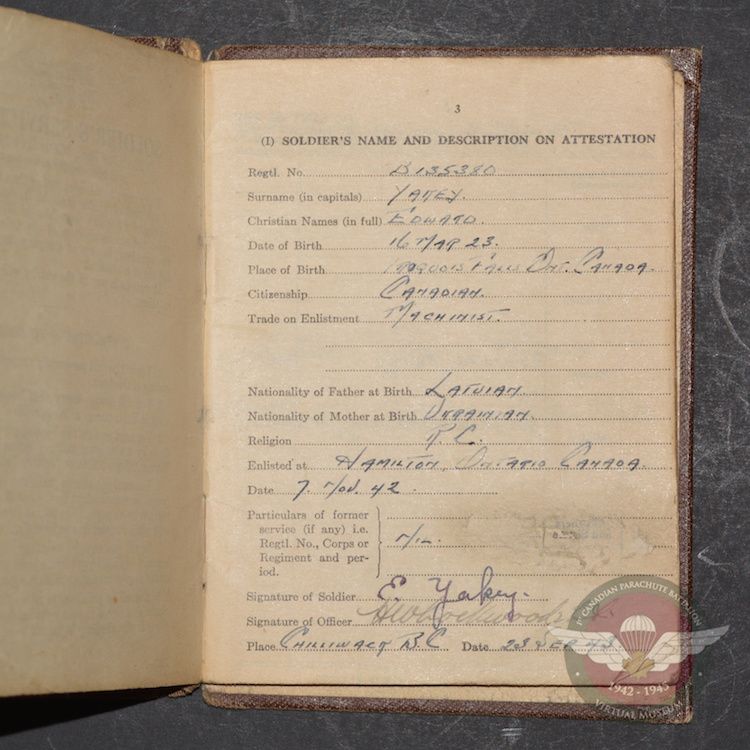 3
(I) SOLDIER'S NAME AND DESCRIPTION ON ATTESTATION
Regtl. No. B135380
Surname (in capitals) YAKEY.
Christian Names (in full) EDWARD.
Date of Birth 16 MAR 23.
Place of Birth IROQUOIS FALLS ONT. CANADA.
Citizenship CANADIAN.
Trade on Enlistment MACHINIST.
Nationality of Father at Birth LATVIAN.
Nationality of Mother at Birth UKRAINIAN.
Religion R.C.
Enlisted at HAMILTON, ONTARIO CANADA.
Date 7. NOV. 42
Particulars of former
service (if any) i.e.
Regtl. No., Corps or
Regiment and per-
iod.
N/L.
Signature of Soldier E. Yakey.
Signature of Officer
Place CHILLIWACK B.C. Date 23 SEP 43
1st CANADIAN PARACHUTE BATTALION
1942 - 1945
VIRTUAL MUSEUM